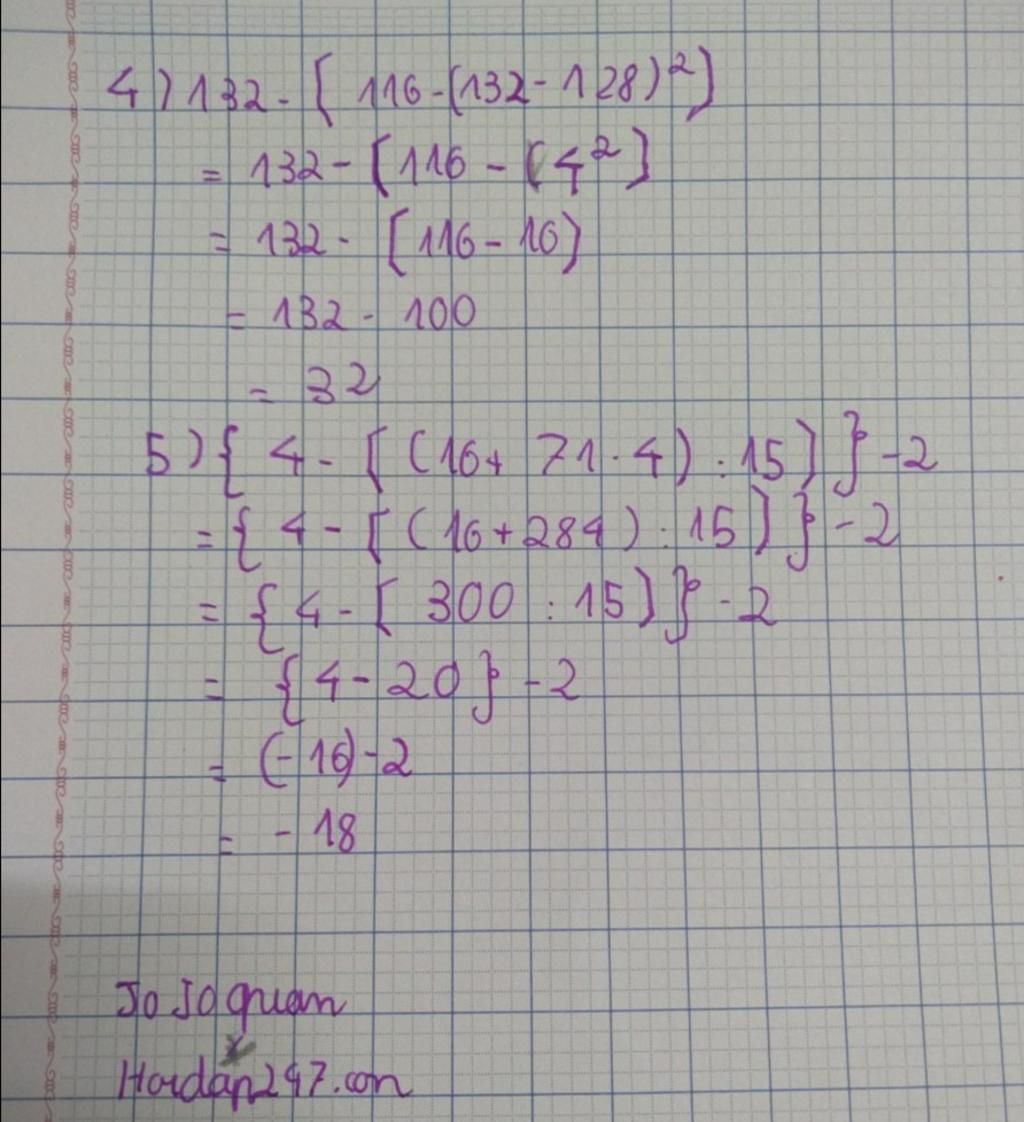 4) 132 - [ 116 - (132 - 128)²]
= 132 - [116 - (4²]
= 132 - [116 - 16]
= 132 - 100
= 32
5) { 4 - [ (16 + 71 . 4) : 15] } - 2
= { 4 - [ (16 + 284) : 15] } - 2
= { 4 - [ 300 : 15] } - 2
= { 4 - 20 } - 2
= (-16) - 2
= - 18
Jo Jo quan
x
Hoidap247.com